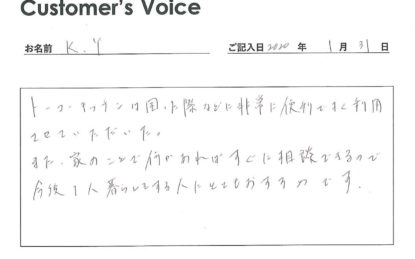 Customer's Voice
お名前 K.Y ご記入日 2020 年 1 月 31 日
トーコーキッチンは困った際などに非常に便利でよく利用
させていただいた。
また、家のことで何かあればすぐに相談できるので
今後1人暮らしをする人にとてもおすすめです。